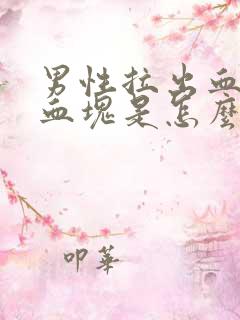 男性拉出血
血塊是怎麼
叩華